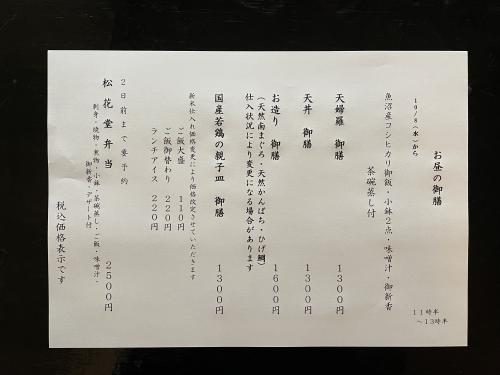 10/8(水)から
お昼の御膳
11時半
～13時半
魚沼産コシヒカリ御飯・小鉢2点・味噌汁・御新香
茶碗蒸し付
天婦羅 御膳 1300円
天丼 御膳 1300円
お造り 御膳 1600円
(天然南まぐろ・天然かんぱち・ひげ鯛)
仕入状況により変更になる場合があります
国産若鶏の親子皿 御膳 1300円
新米仕入れ価格変更により価格改定させていただきます
ご飯大盛 110円
ご飯御替わり 220円
ランチアイス 220円
2日前まで要予約
松花堂弁当 2500円
刺身・焼物・煮物・小鉢・茶碗蒸し・ご飯・味噌汁・
御新香・デザート付
税込価格表示です